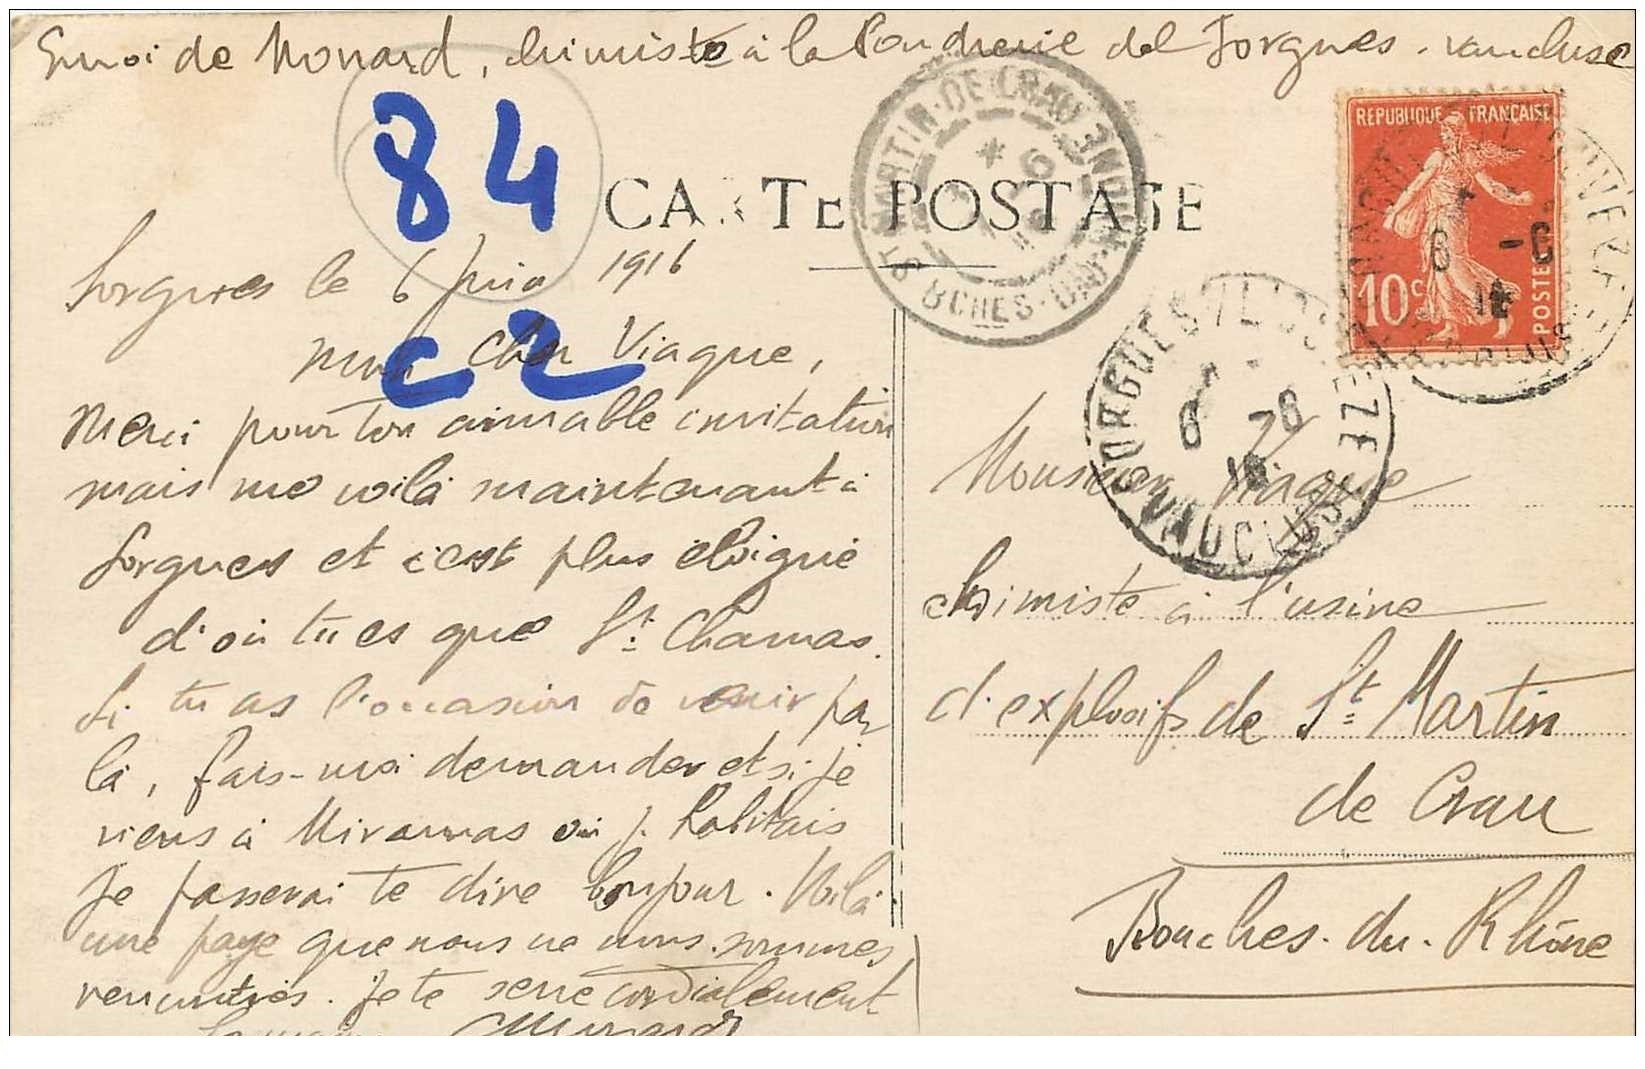 Envoi de Monard, chimiste à la Poudrerie de Sorgues. Vaucluse
84
CARTE POSTALE
ST MARTIN-DE-CRAU
BCHES-DU-RHÔNE
REPUBLIQUE FRANÇAISE
10c
POSTES
SORGUES
VAUCLUSE
Sorgues le 6 juin 1916
C2
Mon cher Viague,
Merci pour ton aimable invitation
mais me voilà maintenant à
Sorgues et c'est plus éloigné
d'où tu es que St Chamas.
Si tu as l'occasion de venir par
là, fais-moi demander et si je
viens à Miramas où j'habitais
je passerai te dire bonjour. Voilà
une paye que nous ne nous sommes
rencontrés. Je te serre cordialement
la main Monard
Monsieur Viague
chimiste à l'usine
d'explosifs de St Martin
de Crau
Bouches-du-Rhône